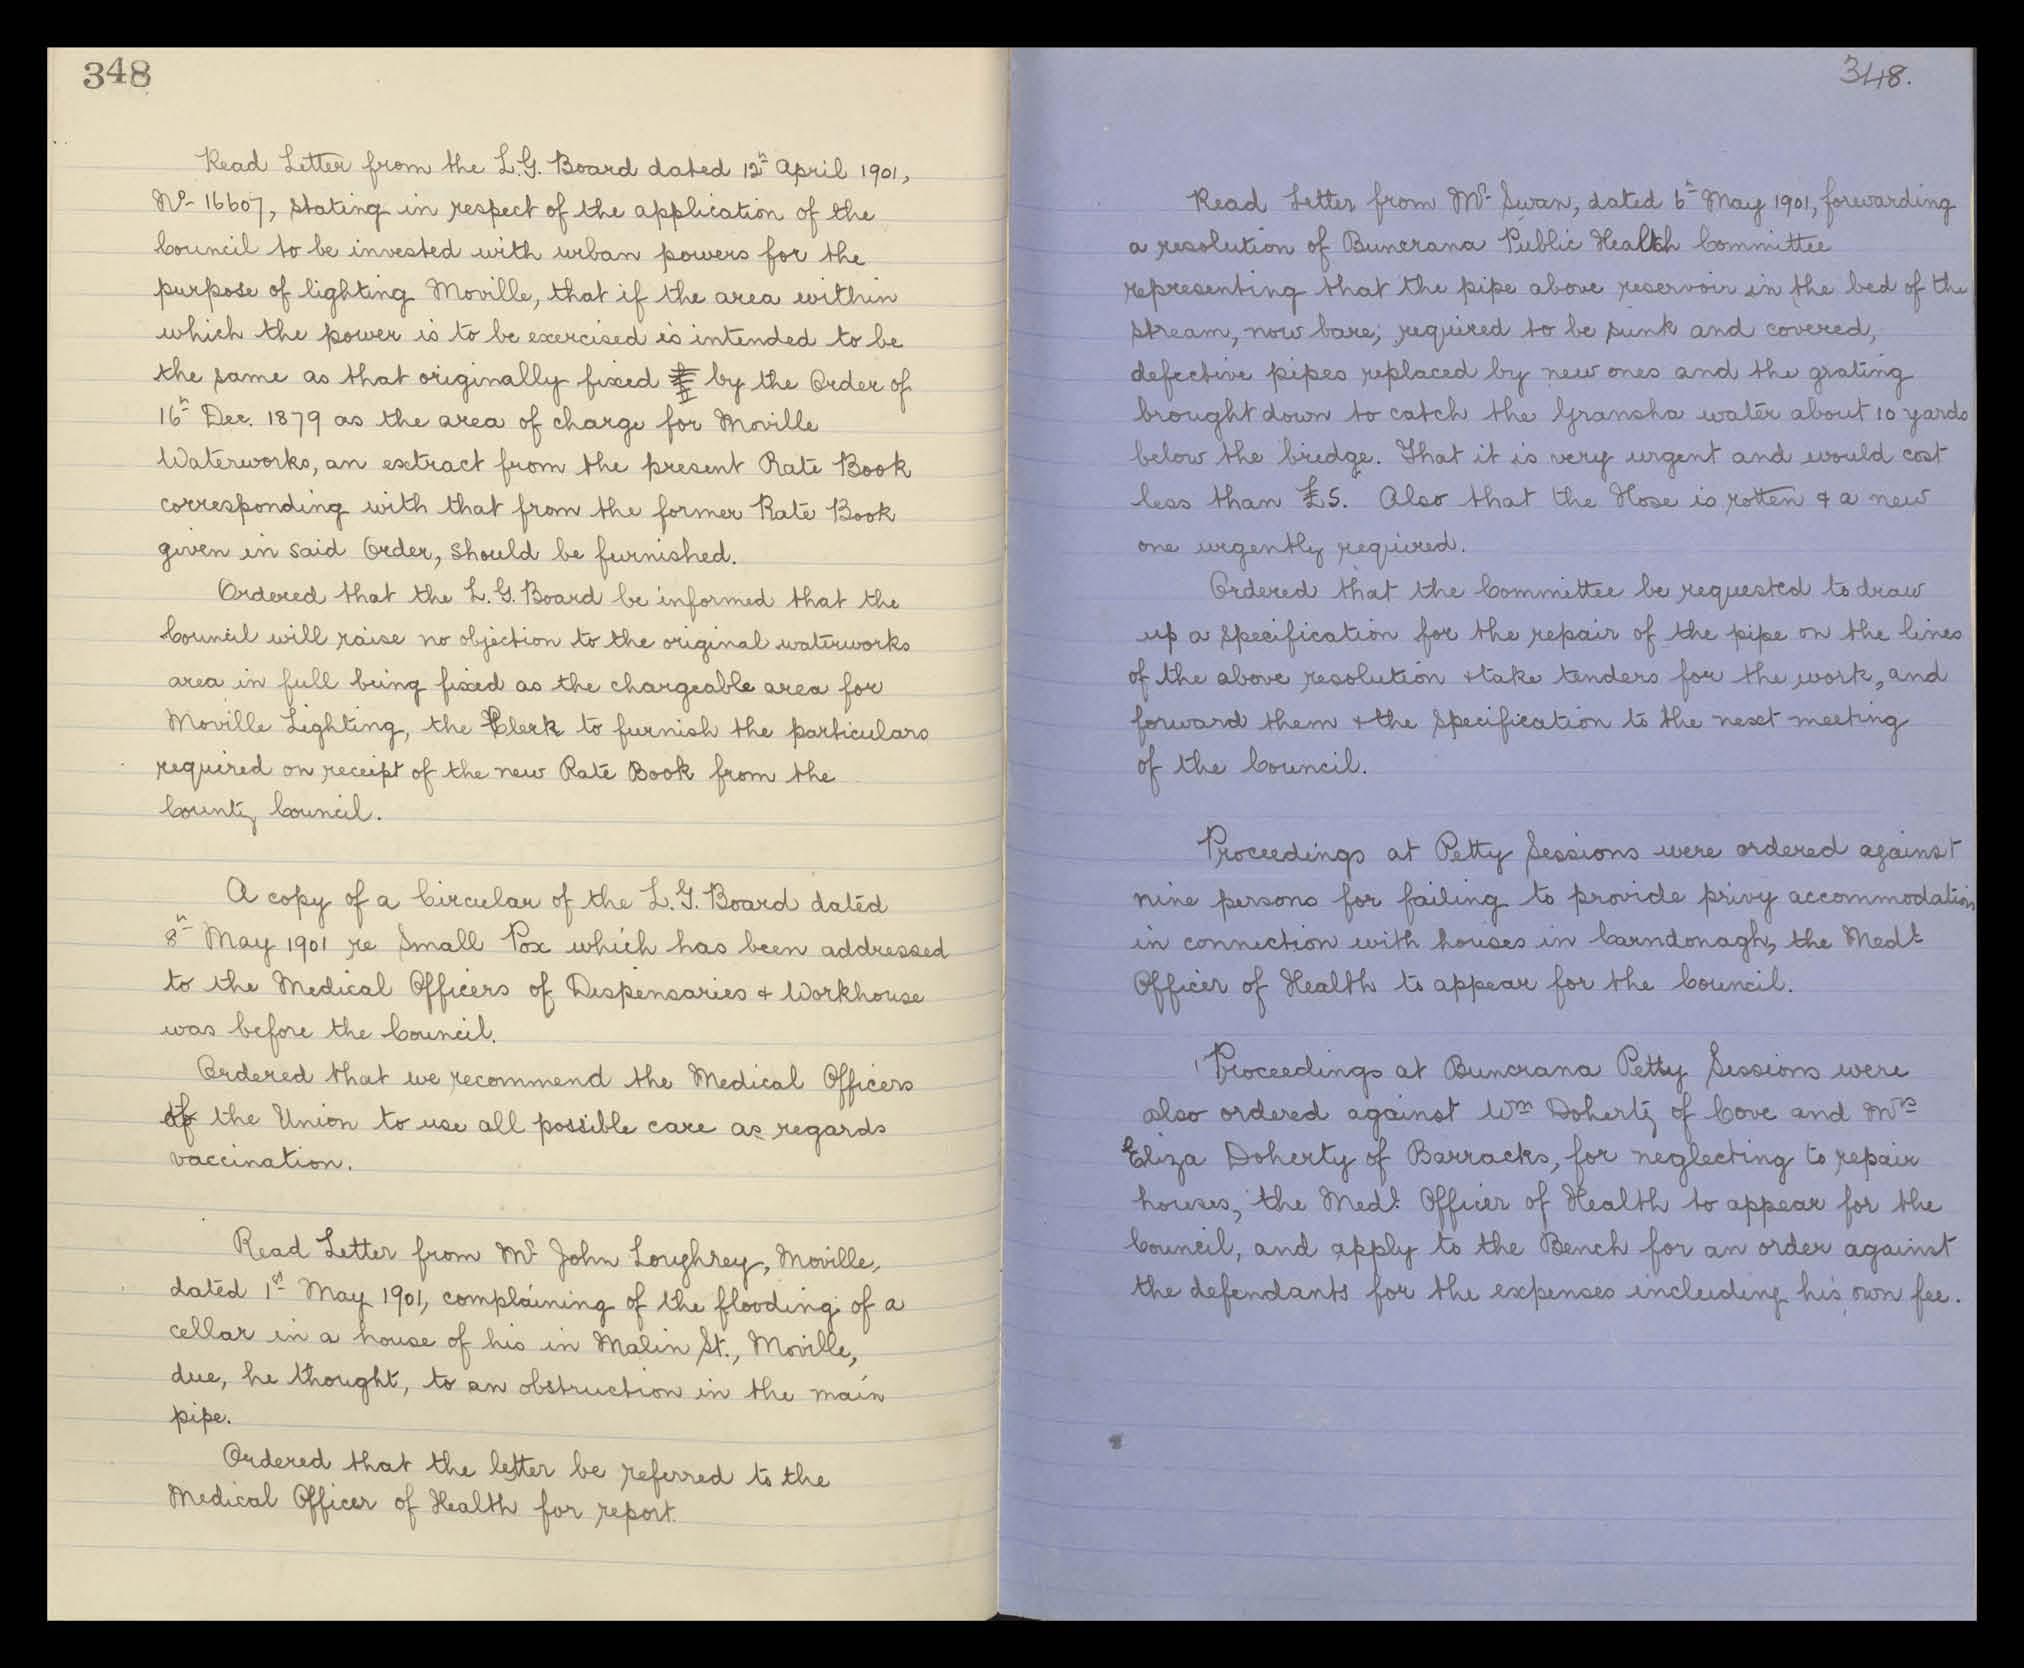 348
Read Letter from the L.G. Board dated 12th April 1901,
No. 16607, stating in respect of the application of the
Council to be invested with urban powers for the
purpose of lighting Moville, that if the area within
which the power is to be exercised is intended to be
the same as that originally fixed by the Order of
16th Dec. 1879 as the area of charge for Moville
Waterworks, an extract from the present Rate Book
corresponding with that from the former Rate Book
given in said Order, should be furnished.
Ordered that the L.G. Board be informed that the
Council will raise no objection to the original waterworks
area in full being fixed as the chargeable area for
Moville Lighting, the Clerk to furnish the particulars
required on receipt of the new Rate Book from the
County Council.
A copy of a Circular of the L.G. Board dated
8th May 1901 re Small Pox which has been addressed
to the Medical Officers of Dispensaries & Workhouse
was before the Council.
Ordered that we recommend the Medical Officers
of the Union to use all possible care as regards
vaccination.
Read Letter from Mr John Loughrey, Moville,
dated 1st May 1901, complaining of the flooding of a
cellar in a house of his in Malin St., Moville,
due, he thought, to an obstruction in the main
pipe.
Ordered that the letter be referred to the
Medical Officer of Health for report.
348.
Read Letter from Mr Swan, dated 6th May 1901, forwarding
a resolution of Buncrana Public Health Committee
representing that the pipe above reservoir in the bed of the
stream, now bare, required to be sunk and covered,
defective pipes replaced by new ones and the grating
brought down to catch the Gransha water about 10 yards
below the bridge. That it is very urgent and would cost
less than £5. Also that the Hose is rotten & a new
one urgently required.
Ordered that the Committee be requested to draw
up a specification for the repair of the pipe on the lines
of the above resolution & take tenders for the work, and
forward them & the specification to the next meeting
of the Council.
Proceedings at Petty Sessions were ordered against
nine persons for failing to provide privy accommodation
in connection with houses in Carndonagh, the Medl
Officer of Health to appear for the Council.
Proceedings at Buncrana Petty Sessions were
also ordered against Wm Doherty of Cove and Mrs
Eliza Doherty of Barracks, for neglecting to repair
houses, the Medl. Officer of Health to appear for the
Council, and apply to the Bench for an order against
the defendants for the expenses including his own fee.